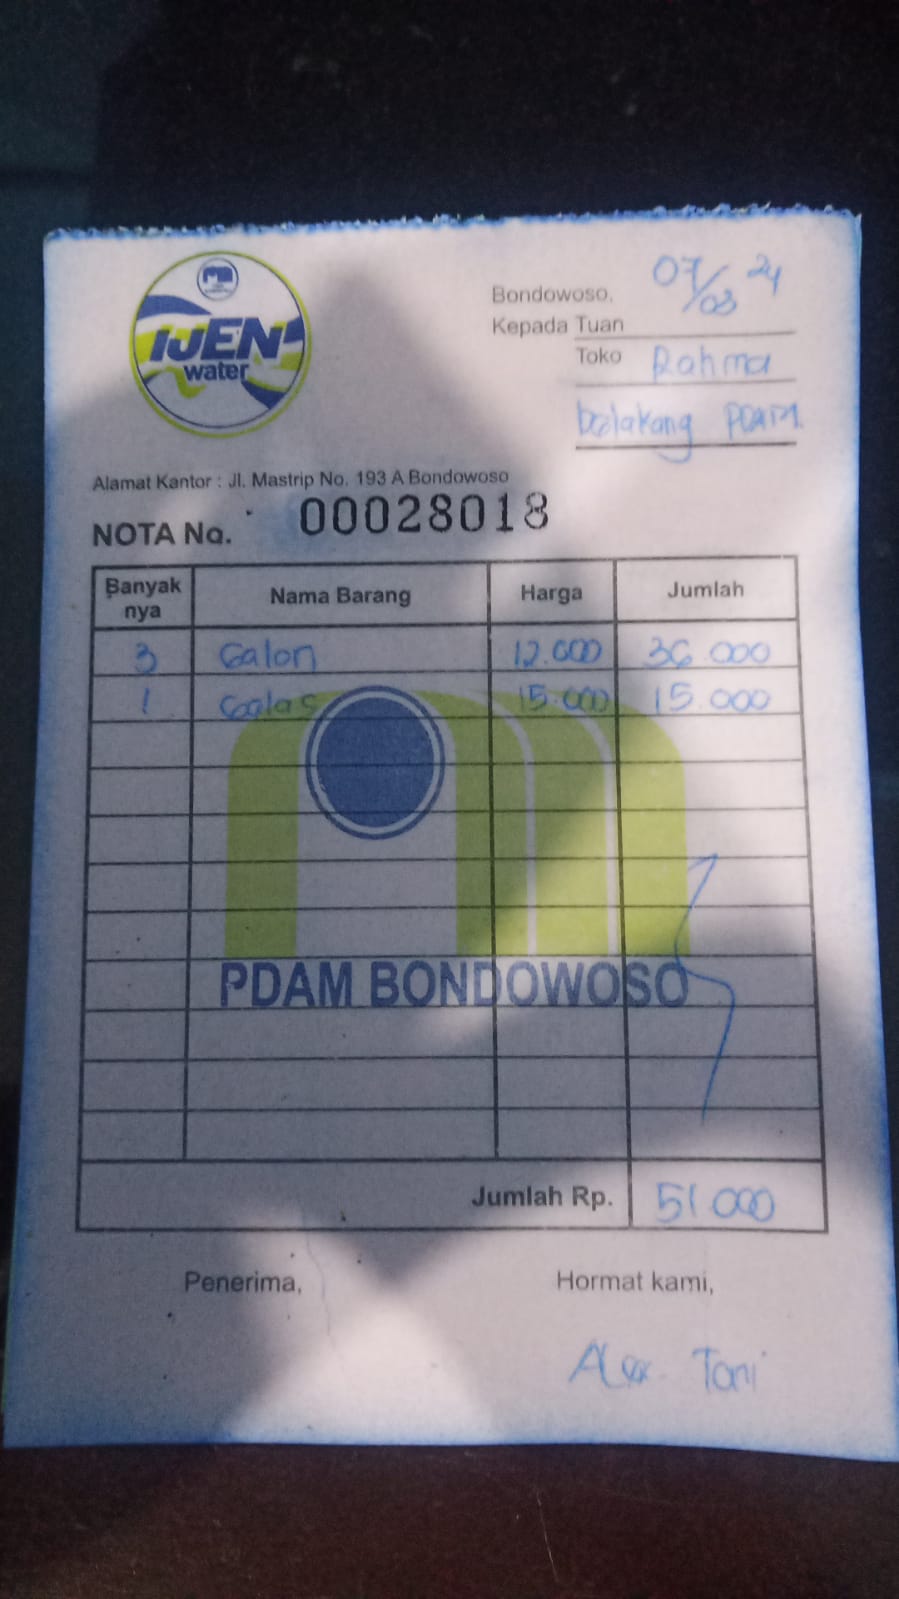 IJEN
water
Bondowoso, 07/03 24
Kepada Tuan
Toko Rahma
belakang PDAM.
Alamat Kantor : Jl. Mastrip No. 193 A Bondowoso
NOTA No. 00028018
Banyak nya Nama Barang Harga Jumlah
3 Galon 12.000 36.000
1 Gelas 15.000 15.000
PDAM BONDOWOSO
Jumlah Rp. 51.000
Penerima, Hormat kami,
Alex Toni